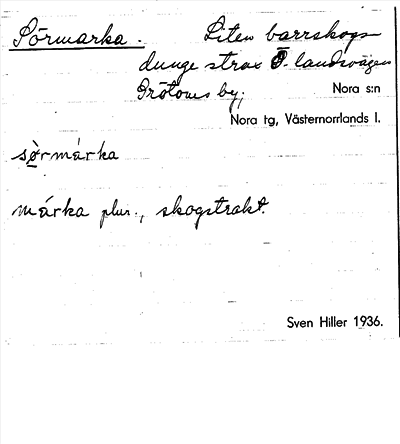 Sörmarka. Liten barrskogs-
dunge strax Ö. landsvägen
Grötoms by; Nora s:n
Nora tg, Västernorrlands l.
sòrmárka
márka plur., skogstrakt.
Sven Hiller 1936.